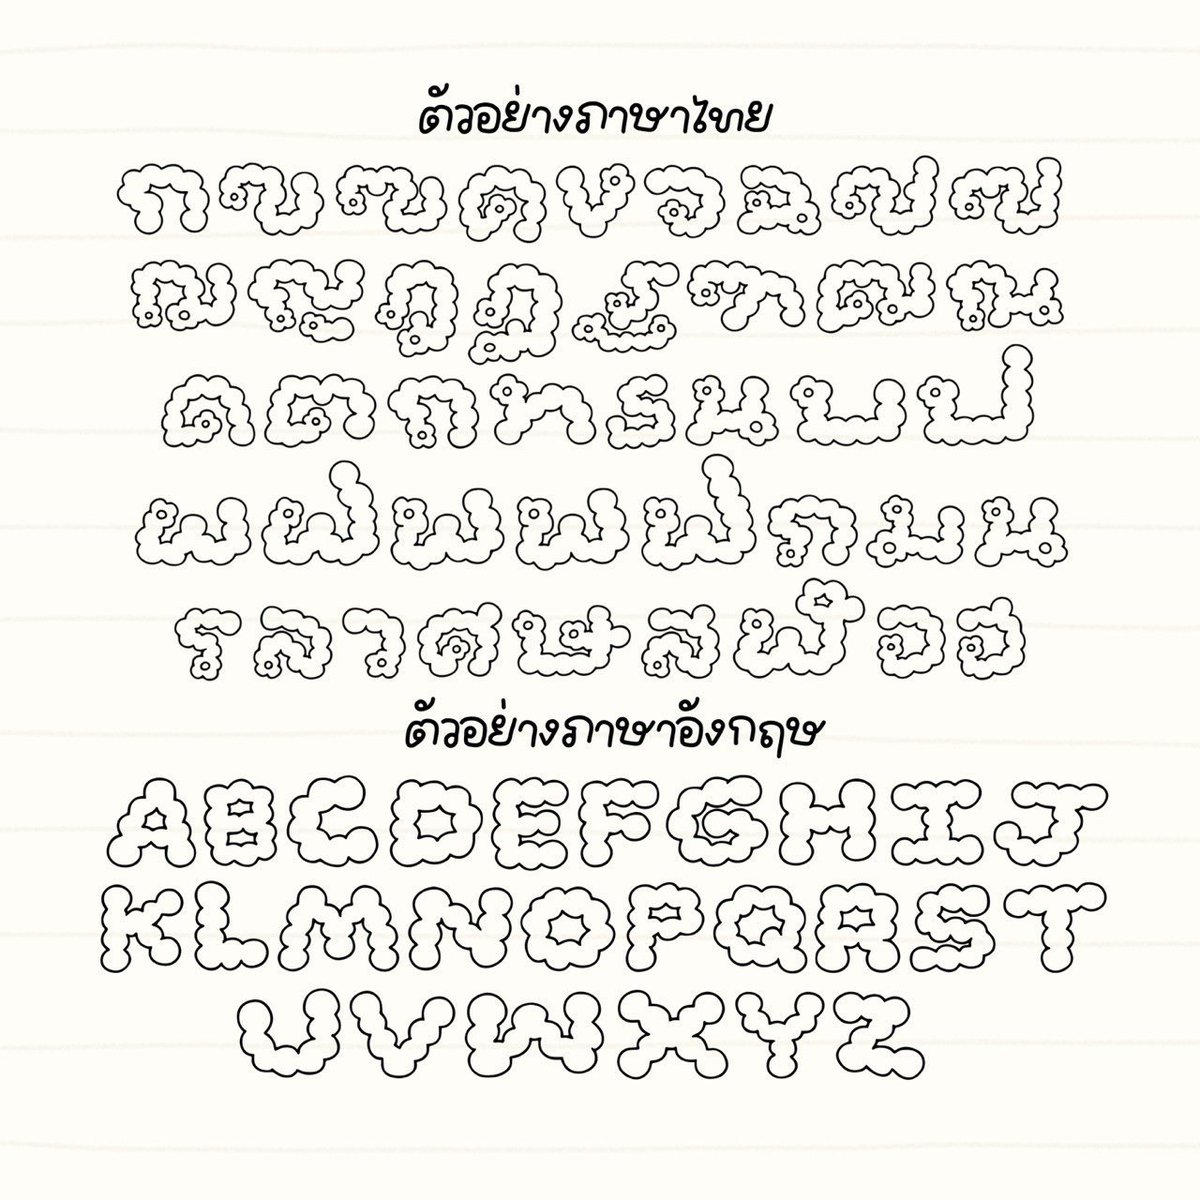 ตัวอย่างภาษาไทย
ก ข ฃ ค ง จ ฉ ช ซ
ฌ ญ ฎ ฏ ฐ ฑ ฒ ณ
ด ต ถ ท ธ น บ ป
ผ ฝ พ พ ฟ ภ ม น
ร ล ว ศ ษ ส ฬ อ ฮ
ตัวอย่างภาษาอังกฤษ
A B C D E F G H I J
K L M N O P Q R S T
U V W X Y Z